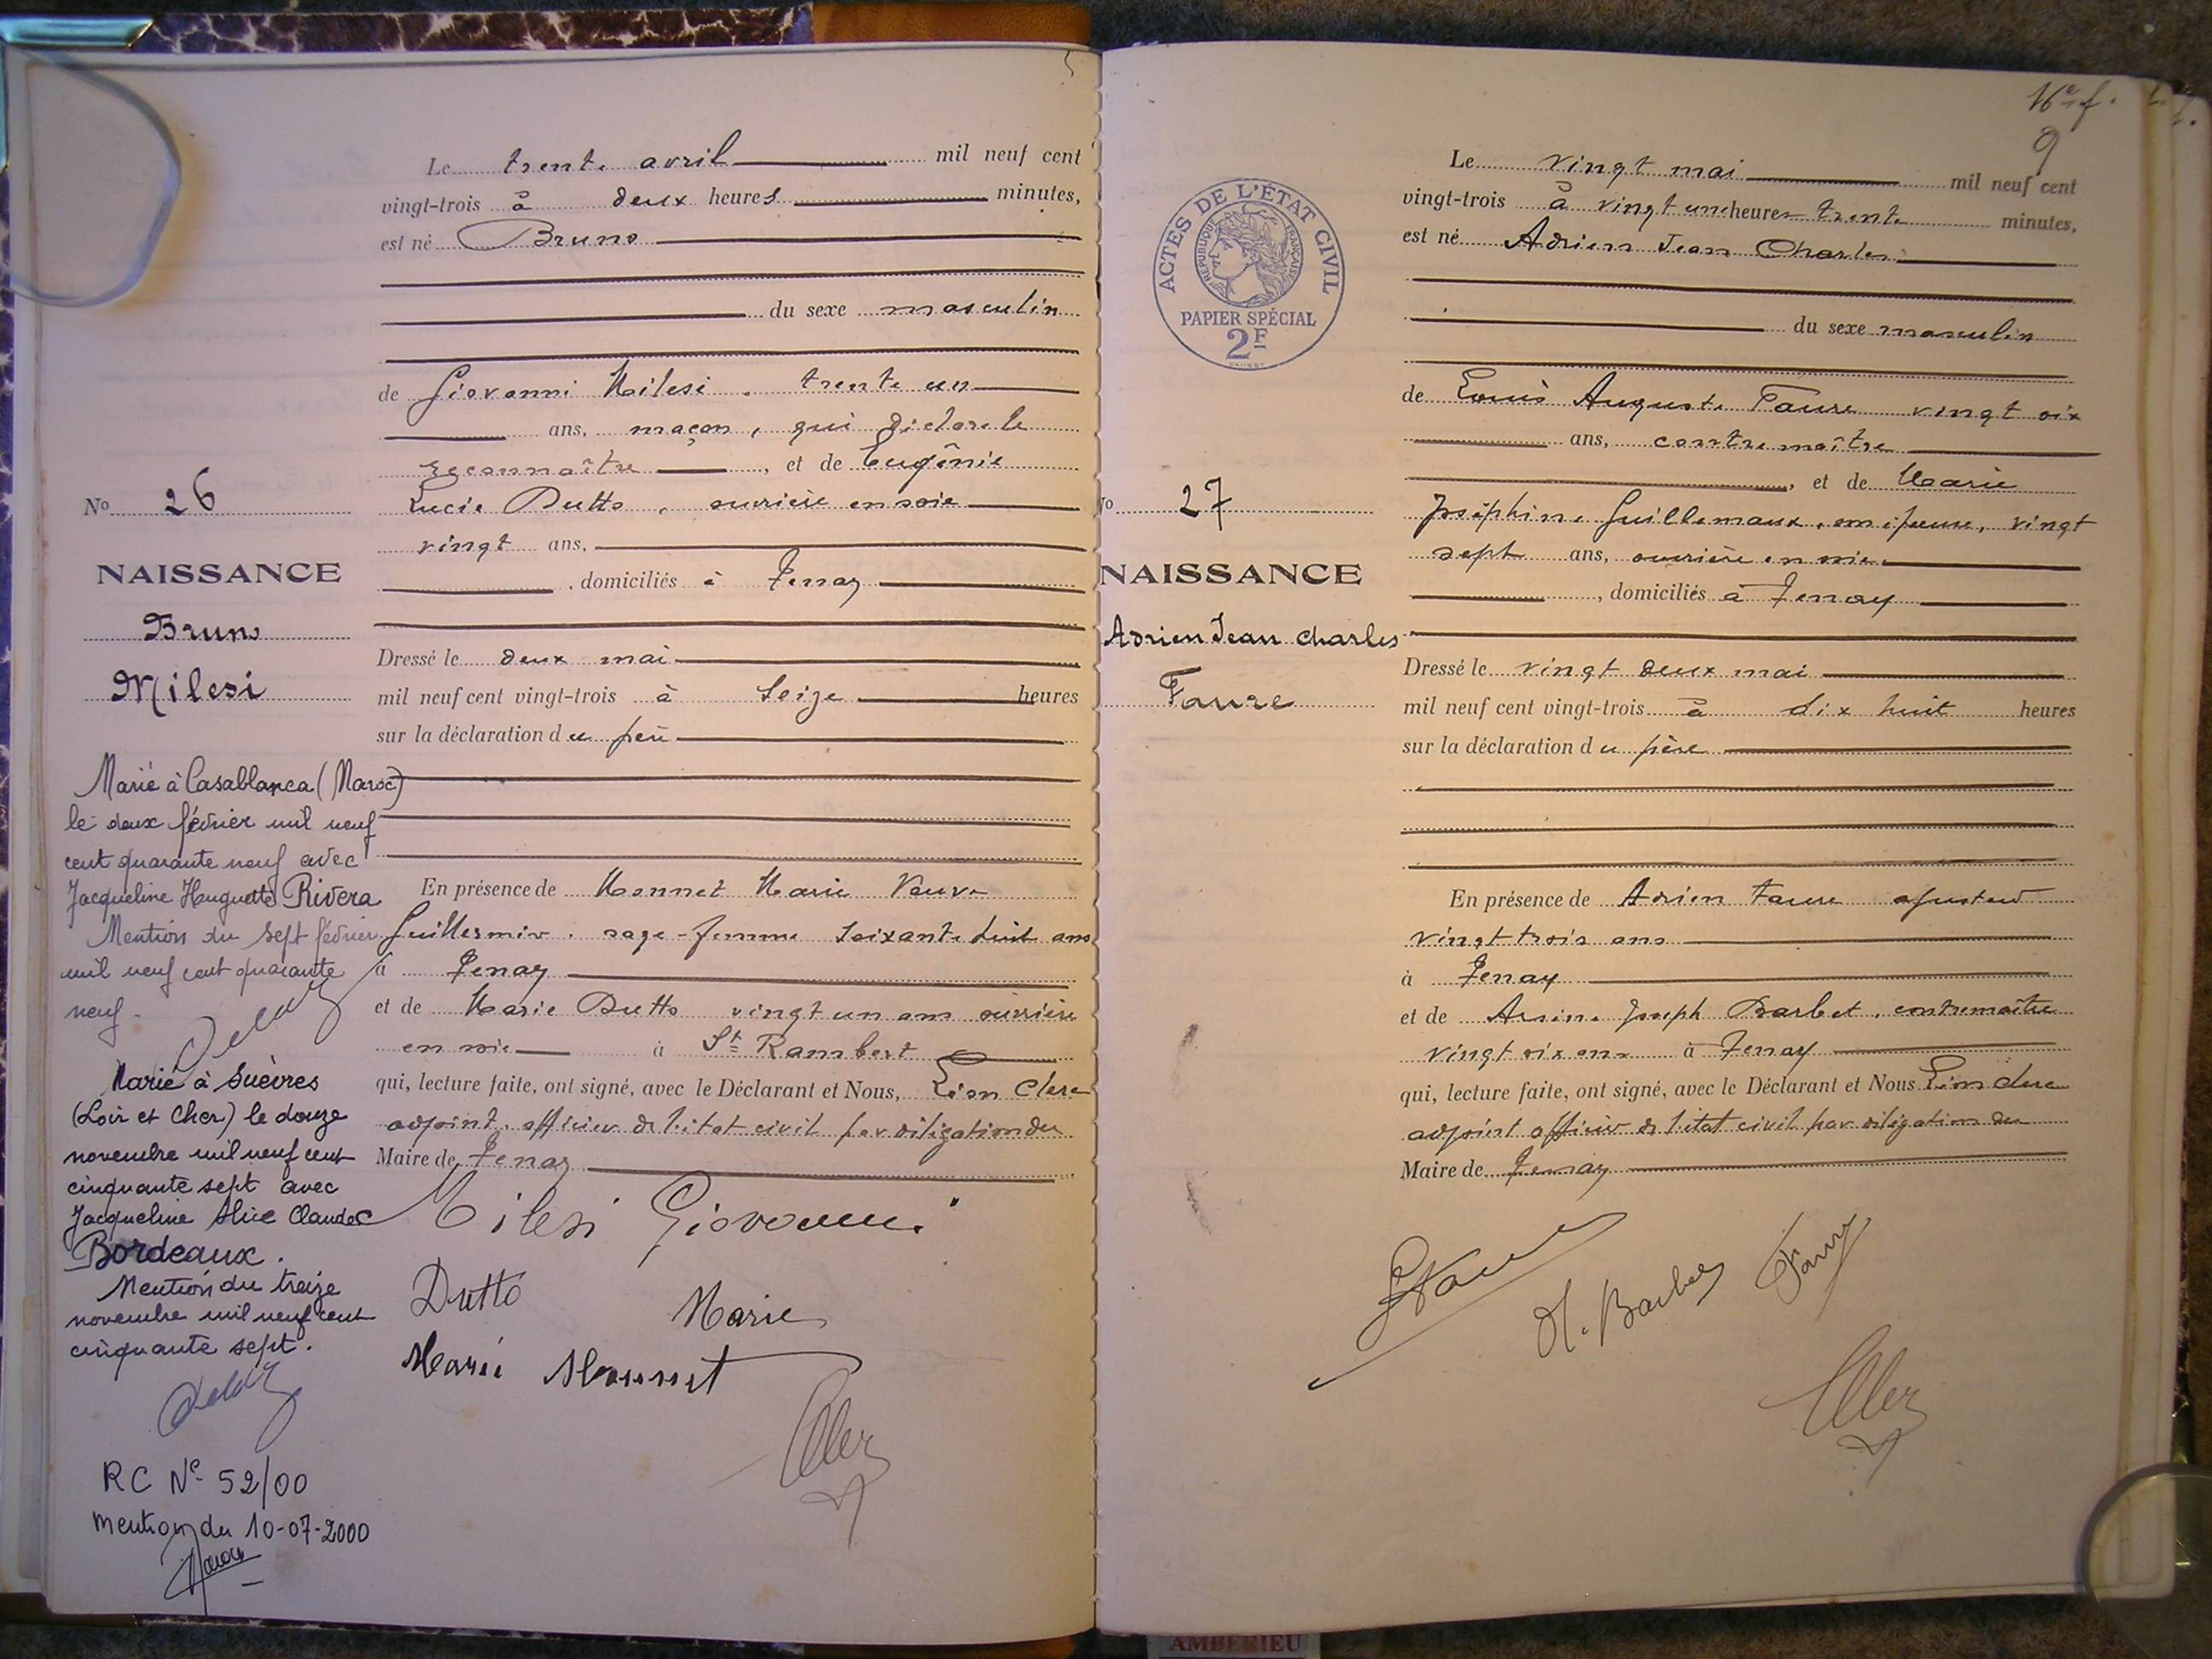 Le trente avril mil neuf cent
vingt-trois à deux heures minutes,
est né Bruno
du sexe masculin
de Giovanni Milesi. trente un
ans, maçon, qui déclare le
reconnaître, et de Eugénie
Lucie Dutto, ouvrière en soie
vingt ans,
, domiciliés à Tenay
Dressé le deux mai
mil neuf cent vingt-trois à seize heures
sur la déclaration du père
En présence de Monnet Marie Veuve
Guillermin. sage-femme soixante huit ans
à Tenay
et de Marie Dutto vingt un ans ouvrière
en soie à St Rambert
qui, lecture faite, ont signé, avec le Déclarant et Nous, Léon Clerc
adjoint. officier de l'état civil par délégation du
Maire de Tenay
Milesi Giovanni
Dutto Marie
Marie Monnet
No 26
NAISSANCE
Bruno
Milesi
Marié à Casablanca (Maroc)
le deux février mil neuf
cent quarante neuf avec
Jacqueline Huguette Rivera
Mention du sept février
mil neuf cent quarante
neuf.
Marié à Suèvres
(Loir et Cher) le douze
novembre mil neuf cent
cinquante sept avec
Jacqueline Alice Claude
Bordeaux.
Mention du treize
novembre mil neuf cent
cinquante sept.
RC N° 52/00
mention du 10-07-2000
16e f.
9
ACTES DE L'ÉTAT CIVIL
RÉPUBLIQUE FRANÇAISE
PAPIER SPÉCIAL
2F
No 27
NAISSANCE
Adrien Jean Charles
Faure
Le vingt mai mil neuf cent
vingt-trois à vingt une heures trente minutes,
est né Adrien Jean Charles
du sexe masculin
de Louis Auguste Faure vingt six
ans, contremaître
, et de Marie
Joséphine Guillemaux, son épouse, vingt
sept ans, ouvrière en soie
, domiciliés à Tenay
Dressé le vingt deux mai
mil neuf cent vingt-trois à dix huit heures
sur la déclaration du père
En présence de Adrien Faure ajusteur
vingt trois ans
à Tenay
et de Arsène Joseph Barbet, contremaître
vingt six ans à Tenay
qui, lecture faite, ont signé, avec le Déclarant et Nous Léon Clerc
adjoint officier de l'état civil par délégation du
Maire de Tenay
Faure
AMBERIEU